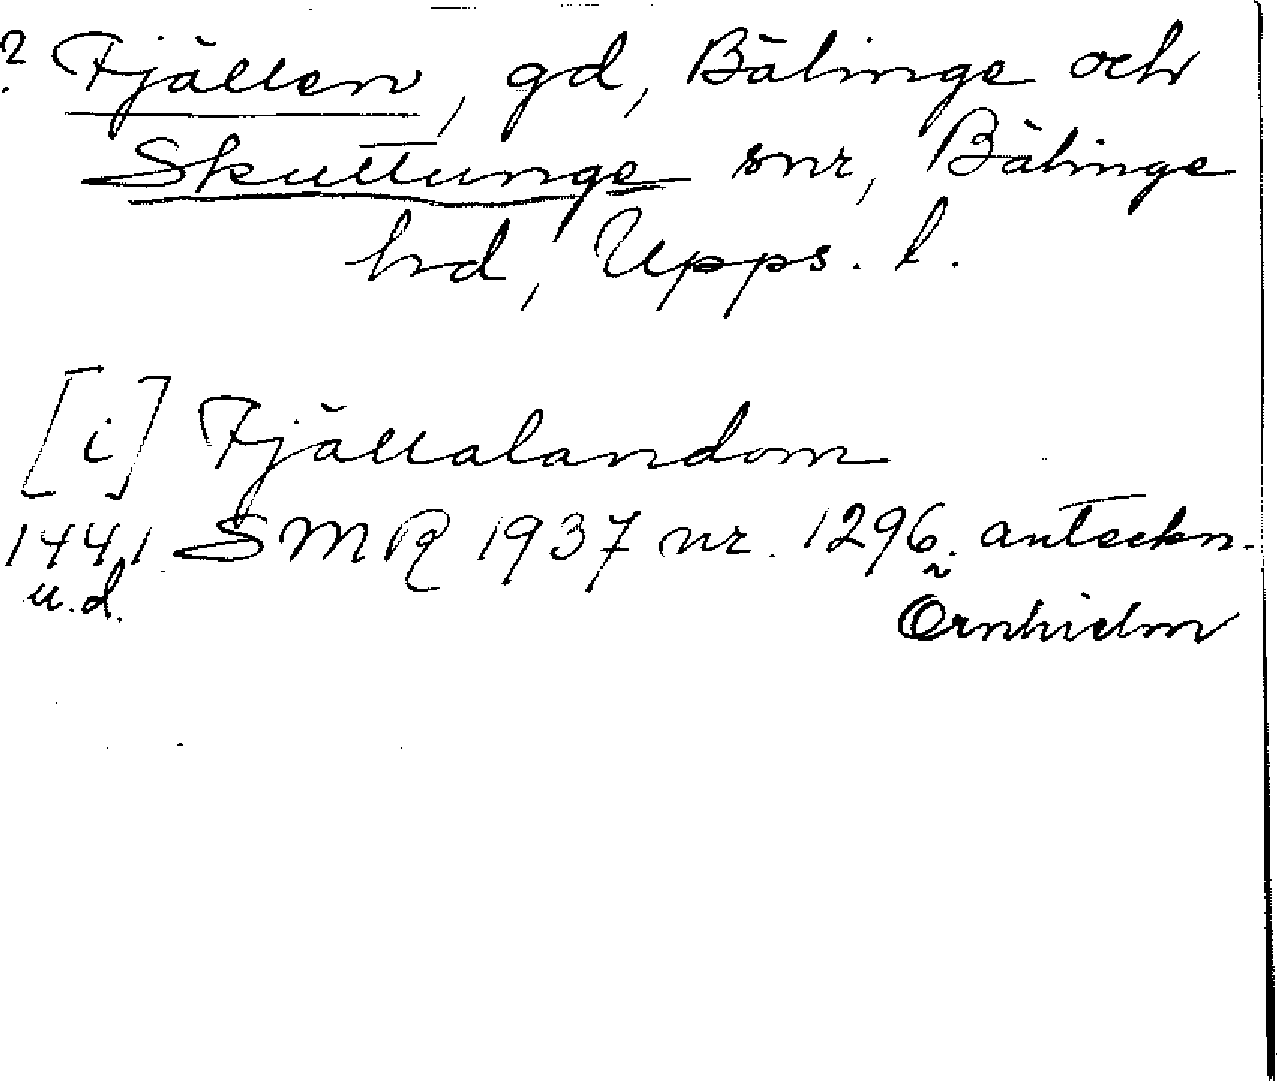 ? Fjällen, gd, Bälinge och
Skuttunge snr, Bälinge
hd, Upps. l.
[i] Fjällalandom
1441 SMR 1937 nr. 1296. anteckn.
u.d. Örnhielm